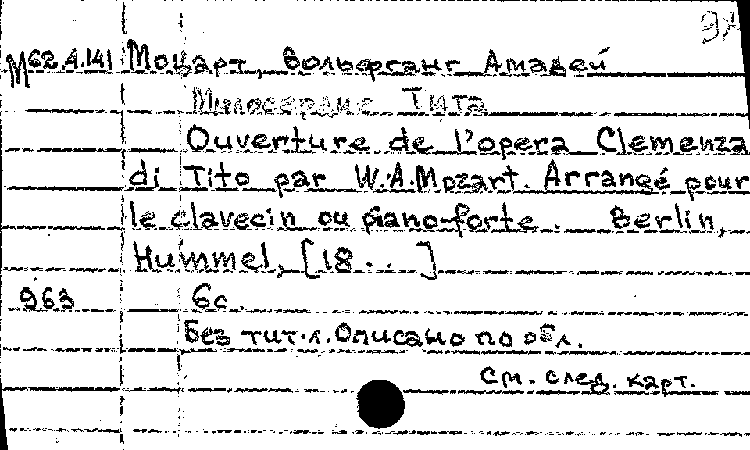 М62.4.141 Моцарт, Вольфганг Амадей
Милосердие Тита
Ouverture de l'opera Clemenza
di Tito par W.A.Mozart. Arrangé pour
le clavecin ou piano-forte. Berlin,
Hummel, [18 . . ]
963 6с.
Без тит.л. Описано по обл.
См. след. карт.